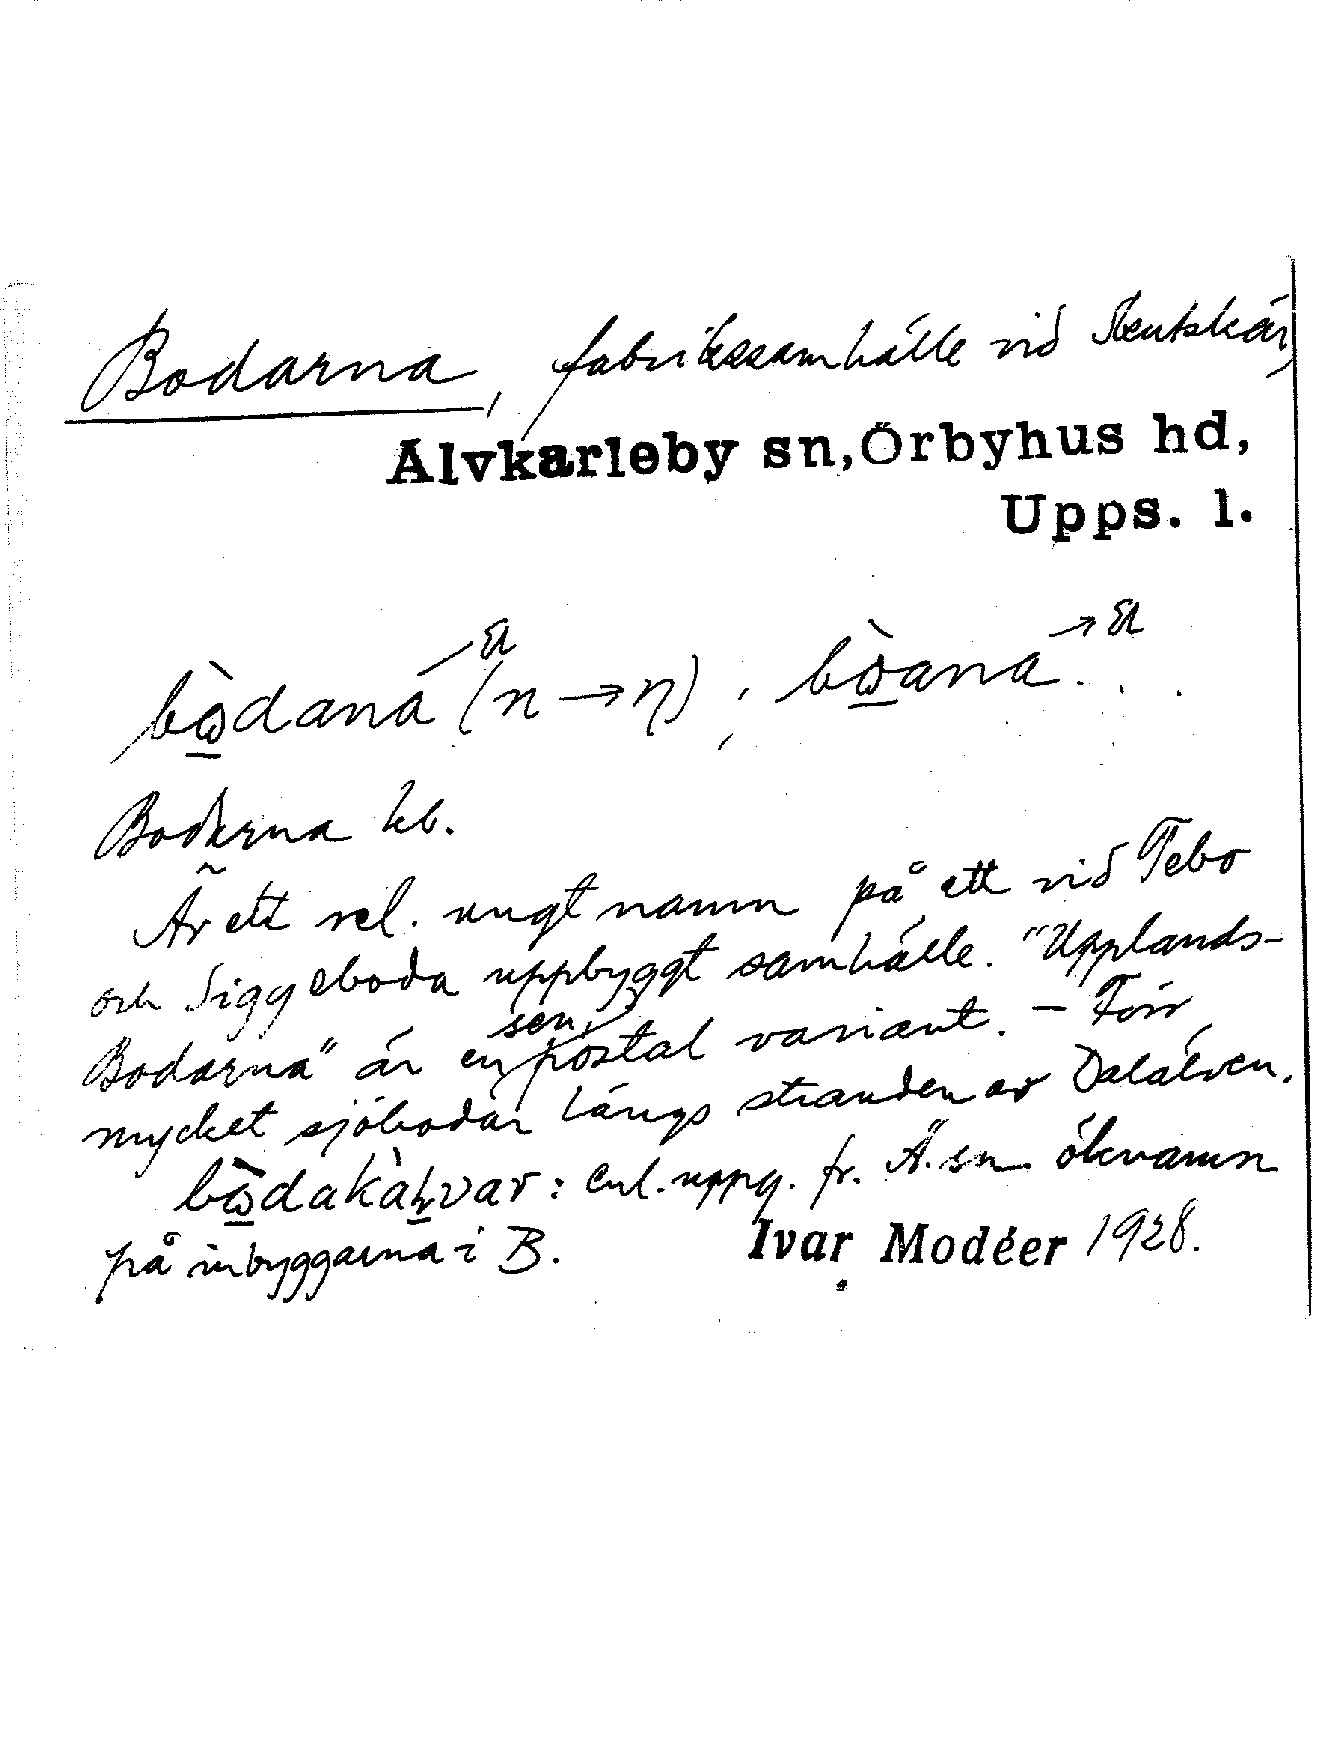 Bodarna, fabrikssamhälle vid Skutskär,
Älvkarleby sn, Örbyhus hd,
Upps. l.
bὼ̲daná → a (n → η), bὼ̲aná → a . . .
Bodarna kb.
Är ett rel. ungt namn på ett vid Tebo
och Siggeboda uppbyggt samhälle. "Upplands-
Bodarna" är en sen postal variant. – Förr
mycket sjöbodar längs stranden av Dalälven.
enl. uppg. fr. Ä. sn öknamn
på inbyggarna i B. Ivar Modéer 1928.